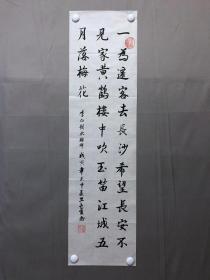 一為遷客去長沙希望長安不
見家黃鶴樓中吹玉笛江城五
月落梅花
李白詩